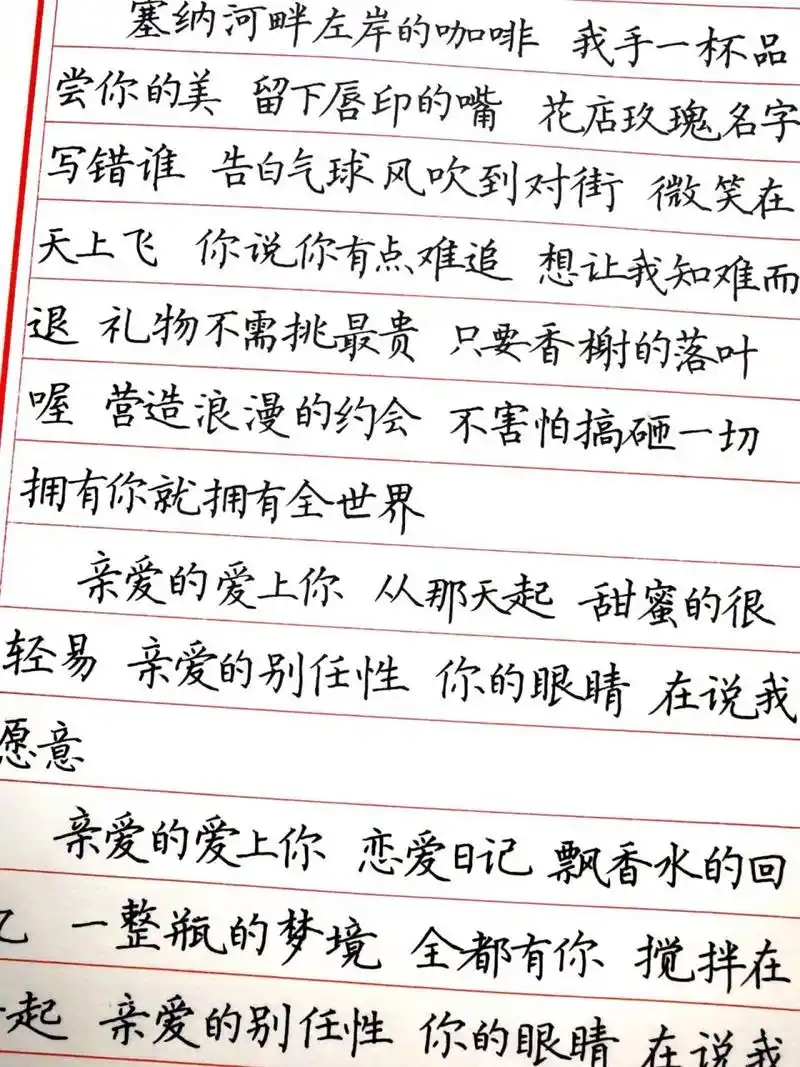 塞纳河畔左岸的咖啡 我手一杯品
尝你的美 留下唇印的嘴 花店玫瑰名字
写错谁 告白气球风吹到对街 微笑在
天上飞 你说你有点难追 想让我知难而
退 礼物不需挑最贵 只要香榭的落叶
喔 营造浪漫的约会 不害怕搞砸一切
拥有你就拥有全世界
亲爱的爱上你 从那天起 甜蜜的很
轻易 亲爱的别任性 你的眼睛 在说我
愿意
亲爱的爱上你 恋爱日记 飘香水的回
忆 一整瓶的梦境 全都有你 搅拌在
一起 亲爱的别任性 你的眼睛 在说我